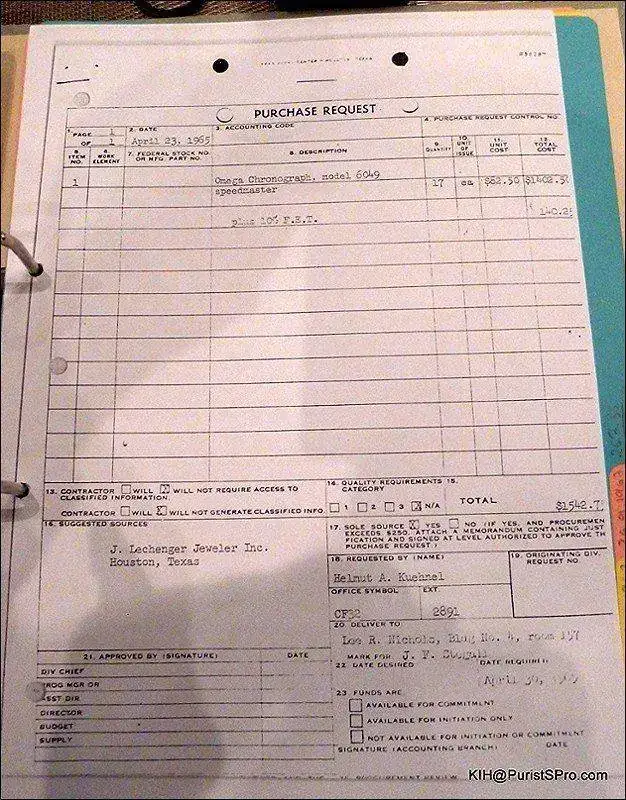 PURCHASE REQUEST
1. PAGE 1 OF 1
2. DATE
April 23, 1965
3. ACCOUNTING CODE
4. PURCHASE REQUEST CONTROL NO.
5. ITEM NO.
6. WORK ELEMENT
7. FEDERAL STOCK NO. OR MFG. PART NO.
8. DESCRIPTION
9. QUANTITY
10. UNIT OF ISSUE
11. UNIT COST
12. TOTAL COST
1 Omega Chronograph, model 6049 17 ea $82.50 $1402.50
speedmaster
plus 10% F.E.T. 140.25
13. CONTRACTOR WILL X WILL NOT REQUIRE ACCESS TO
CLASSIFIED INFORMATION.
CONTRACTOR WILL X WILL NOT GENERATE CLASSIFIED INFO.
14. QUALITY REQUIREMENTS
CATEGORY
1 2 3 X N/A
15.
TOTAL $1542.7
16. SUGGESTED SOURCES
J. Lechenger Jeweler Inc.
Houston, Texas
17. SOLE SOURCE X YES NO (IF YES, AND PROCUREMEN
EXCEEDS $250, ATTACH A MEMORANDUM CONTAINING JUST
FICATION AND SIGNED AT LEVEL AUTHORIZED TO APPROVE TH
PURCHASE REQUEST.)
18. REQUESTED BY (NAME)
Helmut A. Kuehnel
19. ORIGINATING DIV. REQUEST NO.
OFFICE SYMBOL EXT
CF32 2891
20. DELIVER TO:
Lee R. Nichols, Bldg No. 4, room 157
MARK FOR J. F.
21. APPROVED BY (SIGNATURE) DATE
DIV CHIEF
PROG MGR OR
ASST DIR
DIRECTOR
BUDGET
SUPPLY
22 DATE DESIRED DATE REQUIRED
April 30,
23 FUNDS ARE
AVAILABLE FOR COMMITMENT
AVAILABLE FOR INITIATION ONLY
NOT AVAILABLE FOR INITIATION OR COMMITMENT
SIGNATURE (ACCOUNTING BRANCH) DATE
PROCUREMENT REVIEW
KIH@PuristSPro.com